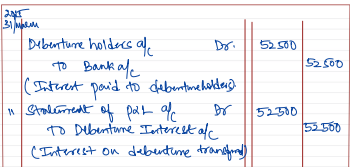 2015
31/March
Debenture holders a/c Dr. 52500
To Bank a/c 52500
(Interest paid to debentureholders)
" Statement of P&L a/c Dr 52500
To Debenture Interest a/c 52500
(Interest on debenture transferred)